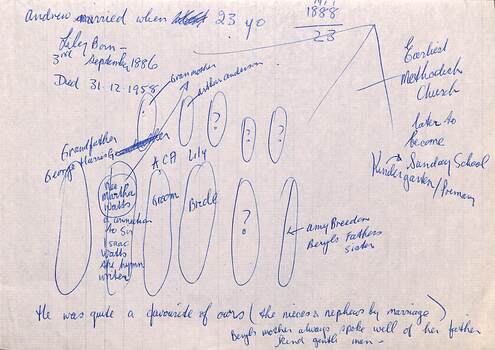 andrew married when 23 yo
1911
1888
23
Lily Born -
3rd September 1886
Died 31.12.1958
Grandmother
Arthur anderson
?
?
?
Earliest
Methodist
Church
later to
become
Sunday School
Kindergarten/Primary
Grandfather
George Harris
ACA
Lily
nee
Martha
Watts
a connection
to Sir
Isaac
Watts
the hymn
writer
Groom
Bride
?
amy Breedon
Beryls Fathers
sister
He was quite a favourite of ours (the nieces & nephews by marriage)
Beryls mother always spoke well of her father
kind gentle man -